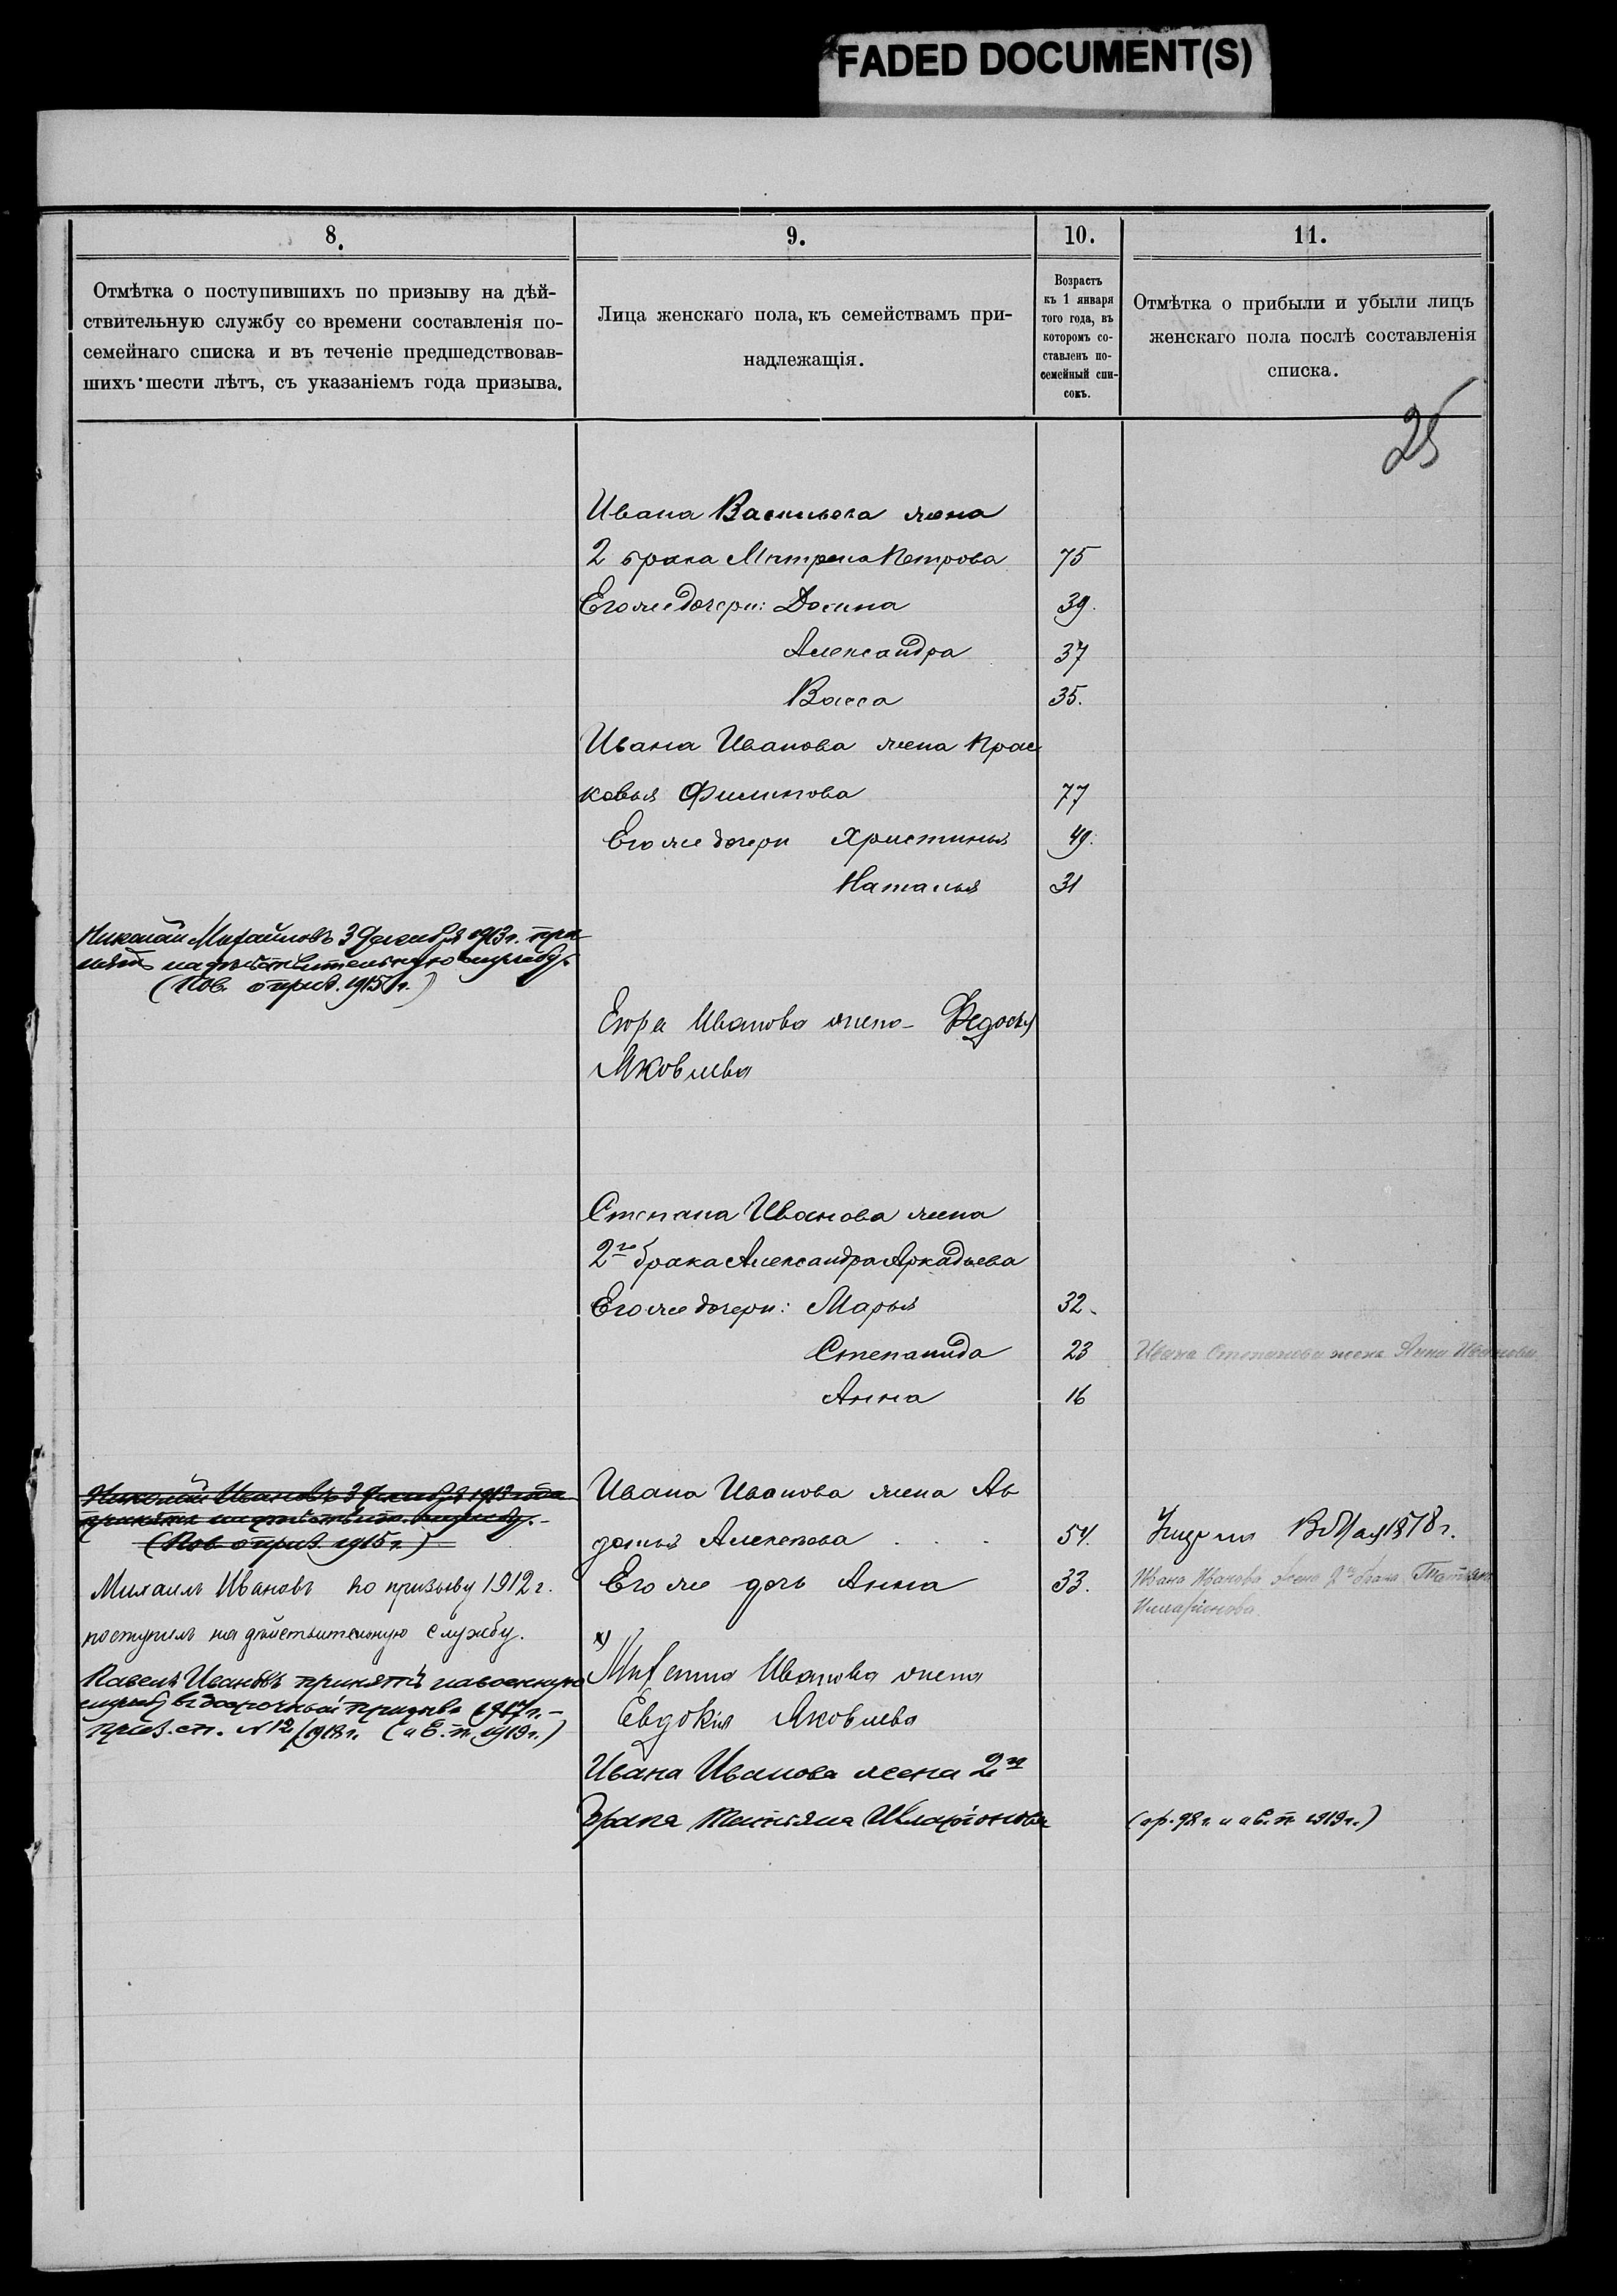 FADED DOCUMENT(S)
8.
Отмѣтка о поступившихъ по призыву на дѣй-
ствительную службу со времени составленія по-
семейнаго списка и въ теченіе предшедствовав-
шихъ шести лѣтъ, съ указаніемъ года призыва.
9.
Лица женскаго пола, къ семействамъ при-
надлежащія.
10.
Возрастъ
къ 1 января
того года, въ
которомъ со-
ставленъ по-
семейный спи-
сокъ.
11.
Отмѣтка о прибыли и убыли лицъ
женскаго пола послѣ составленія
списка.
25
Ивана Васильева жена
2 брака Матрена Петрова 75
Его же дочери: Домна 39.
Александра 37
Васса 35.
Ивана Иванова жена Прас
ковья Филипова 77
Его же дочери Христинья 49.
Наталья 31
Николай Михайловъ 3 Декабря 1913 г. при
нятъ на действительную службу.
(Пов. о приз. 1915 г.)
Егора Иванова жена Федосья
Яковлева
Степана Иванова жена
2го брака Александра Аркадьева
Его же дочери: Марья 32.
Степанида 23 Ивана Степанова жена Анна Иванова
Анна 16
Николай Ивановъ 3 Декабря 1913 года
принятъ на действит. службу.
(Пов. о приз. 1915 г.)
Ивана Иванова жена Ав
дотья Алексеева . . . 54. 1878 г.
Михаилъ Ивановъ по призыву 1912 г.
поступилъ на действительную службу.
Его же дочь Анна 33. Ивана Иванова жена 2го брака Татьяна
Иларіонова.
Павелъ Ивановъ принятъ на военную
службу въ досрочный призывъ 1917 г. –
приз. сп. №12/1918 г. 1919 г.)
х)
Иванова жена
Евдокія Яковлева
Ивана Иванова жена 2го
брака Татьяна Иларіонова 1919 г.)